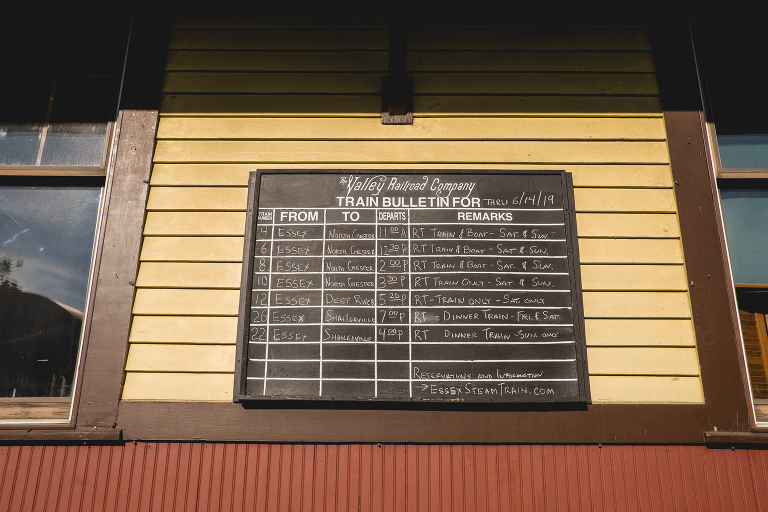 The Valley Railroad Company
TRAIN BULLETIN FOR THRU 6/14/19
TRAIN NUMBER FROM TO DEPARTS REMARKS
4 ESSEX NORTH CHESTER 11 00 A RT TRAIN & BOAT - SAT. & SUN.
6 ESSEX NORTH CHESTER 12 30 P RT TRAIN & BOAT - SAT. & SUN.
8 ESSEX NORTH CHESTER 2 00 P RT TRAIN & BOAT - SAT. & SUN.
10 ESSEX NORTH CHESTER 3 30 P RT TRAIN ONLY - SAT. & SUN.
12 ESSEX DEEP RIVER 5 20 P RT - TRAIN ONLY - SAT. ONLY
26 ESSEX SHAILERVILLE 7 00 P RT - DINNER TRAIN - FRI. & SAT
22 ESSEX SHAILERVILLE 4 00 P RT DINNER TRAIN - SUN. ONLY
RESERVATIONS AND INFORMATION
→ ESSEXSTEAMTRAIN.COM